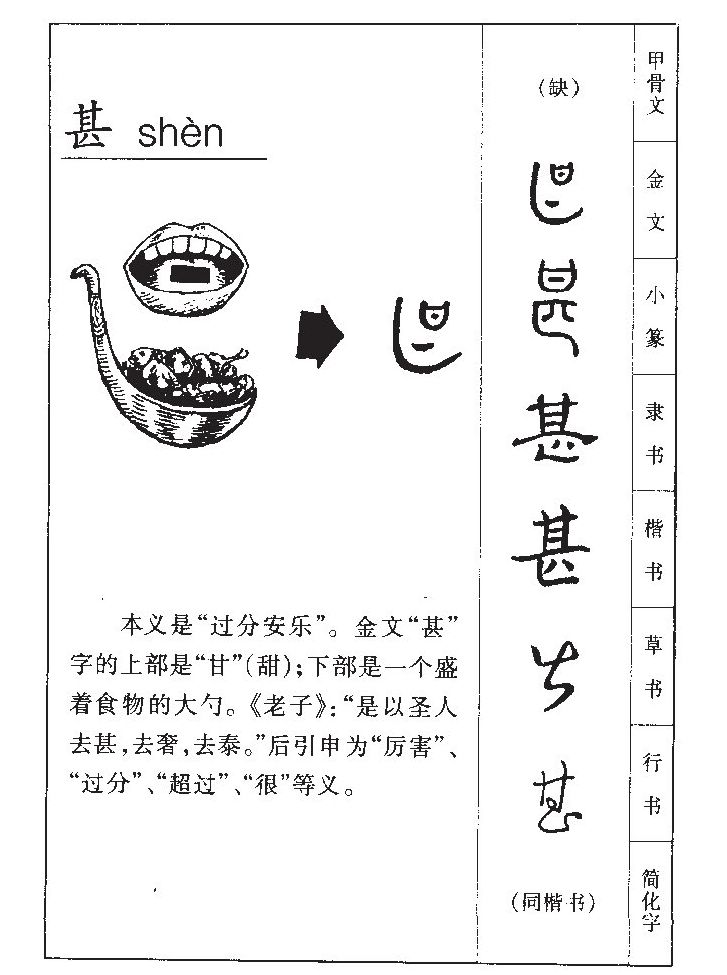 甚 shèn
本义是“过分安乐”。金文“甚”
字的上部是“甘”(甜);下部是一个盛
着食物的大勺。《老子》:“是以圣人
去甚,去奢,去泰。”后引申为“厉害”、
“过分”、“超过”、“很”等义。
(缺)
甲骨文
金文
小篆
甚
隶书
甚
楷书
草书
甚
行书
(同楷书)
简化字